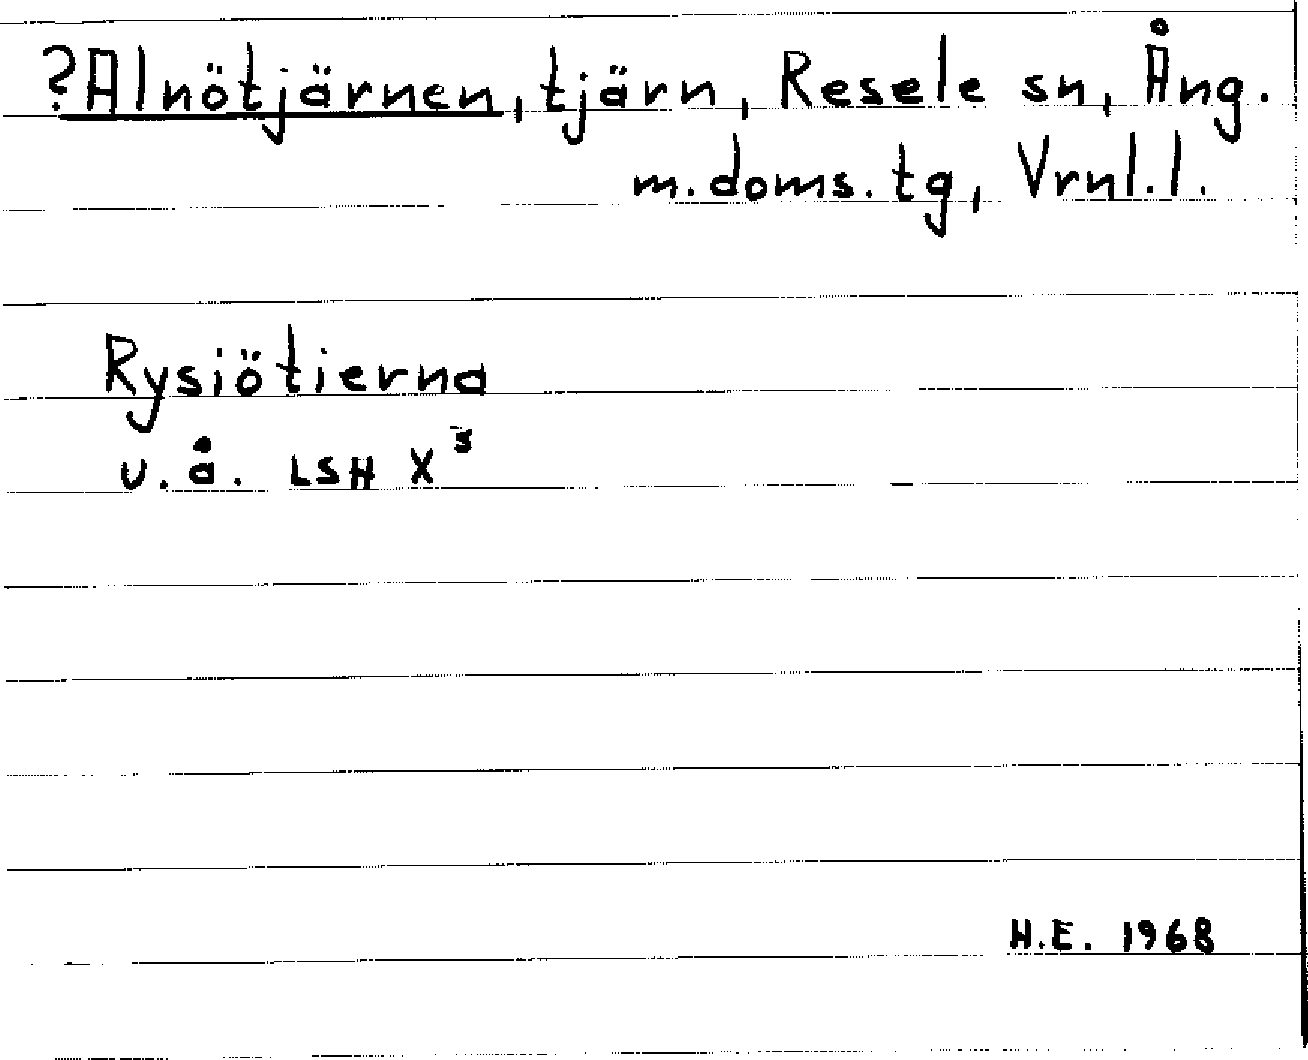 ?Alnötjärnen, tjärn, Resele sn, Ång.
m. doms. tg, Vrnl. l.
Rysiötierna
u. å. LSH X³
H.E. 1968